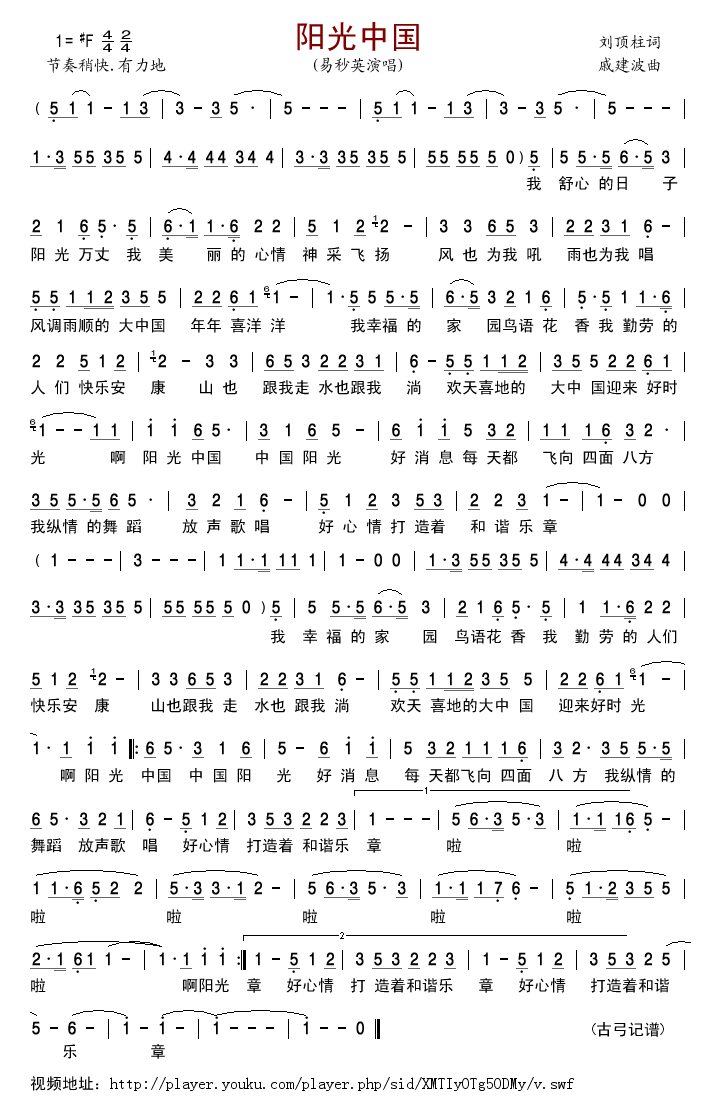 阳光中国
1= #F 4/4 2/4
刘顶柱词
节奏稍快.有力地
(易秒英演唱)
戚建波曲
(5 1 1 - 1 3 | 3 - 3 5 · | 5 - - - | 5 1 1 - 1 3 | 3 - 3 5 · | 5 - - - |
1·3 55 35 5 | 4·4 44 34 4 | 3·3 35 35 5 | 55 55 5 0) 5 | 5 5·5 6·5 3 |
我 舒心 的日 子
2 1 6 5· 5 | 6·1 1·6 2 2 | 5 1 2 2 - | 3 3 6 5 3 | 2 2 3 1 6 - |
阳 光 万丈 我 美 丽 的 心情 神 采 飞 扬 风 也 为我 吼 雨也为我 唱
5 5 1 1 2 3 5 5 | 2 2 6 1 6 1 - | 1·5 5 5 5·5 | 6·5 3 2 1 6 | 5 5 1 1·6 |
风调雨顺的 大中国 年年 喜洋 洋 我幸福 的 家 园鸟语 花 香 我 勤劳 的
2 2 5 1 2 | 1 2 - 3 3 | 6 5 3 2 2 3 1 | 6 - 5 5 1 1 2 | 3 5 5 2 2 6 1 |
人 们 快乐安 康 山 也 跟我走 水也跟我 淌 欢天喜地的 大中 国迎来 好时
6 1 - - 1 1 | 1 1 6 5 · | 3 1 6 5 - | 6 1 1 5 3 2 | 1 1 1 6 3 2 · |
光 啊 阳 光 中国 中 国 阳 光 好 消 息 每 天都 飞向 四面 八方
3 5 5·5 6 5 · | 3 2 1 6 - | 5 1 2 3 5 3 | 2 2 3 1 - | 1 - 0 0 |
我纵情 的舞 蹈 放 声 歌 唱 好 心 情 打 造着 和 谐 乐 章
(1 - - - | 3 - - - | 1 1·1 11 1 | 1 - 0 0 | 1·3 55 35 5 | 4·4 44 34 4 |
3·3 35 35 5 | 55 55 5 0) 5 | 5 5·5 6·5 3 | 2 1 6 5· 5 | 1 1·6 2 2 |
我 幸 福 的 家 园 鸟语花 香 我 勤 劳 的 人们
5 1 2 1 2 - | 3 3 6 5 3 | 2 2 3 1 6 - | 5 5 1 1 2 3 5 5 | 2 2 6 1 6 1 - |
快乐安 康 山也跟我 走 水也 跟我 淌 欢天 喜地的大中 国 迎来好时 光
1· 1 1 1 ‖: 6 5· 3 1 6 | 5 - 6 1 1 | 5 3 2 1 1 1 6 | 3 2· 3 5 5·5 |
啊 阳 光 中国 中 国 阳 光 好 消 息 每 天都飞向 四面 八 方 我纵情 的
1
6 5· 3 2 1 | 6 - 5 1 2 | 3 5 3 2 2 3 | 1 - - - | 5 6·3 5·3 | 1·1 1 1 6 5 - |
舞蹈 放声歌 唱 好心情 打造着 和谐乐 章 啦 啦
1 1·6 5 2 2 | 5·3 3·1 2 - | 5 6·3 5·3 | 1 1·1 1 7 6 - | 5 1·2 3 5 5 |
啦 啦 啦 啦 啦
2
2·1 6 1 1 - | 1· 1 1 1 :‖ 1 - 5 1 2 | 3 5 3 2 2 3 | 1 - 5 1 2 | 3 5 3 2 2 3 |
啦 啊阳光 章 好心情 打 造着和谐乐 章 好心情 打造着和谐
5 - 6 - | 1 - 1 - | 1 - - - | 1 - 0 ‖
(古弓记谱)
乐 章
视频地址：http://player.youku.com/player.php/sid/XMTIyOTg5ODMy/v.swf